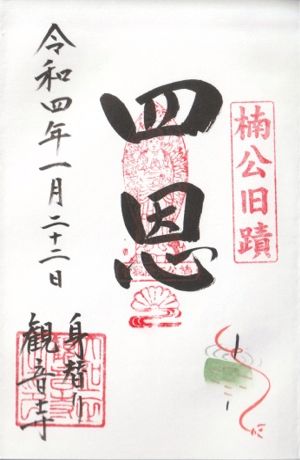 楠公旧蹟
四恩
令和四年一月二十二日
身替り
観音寺